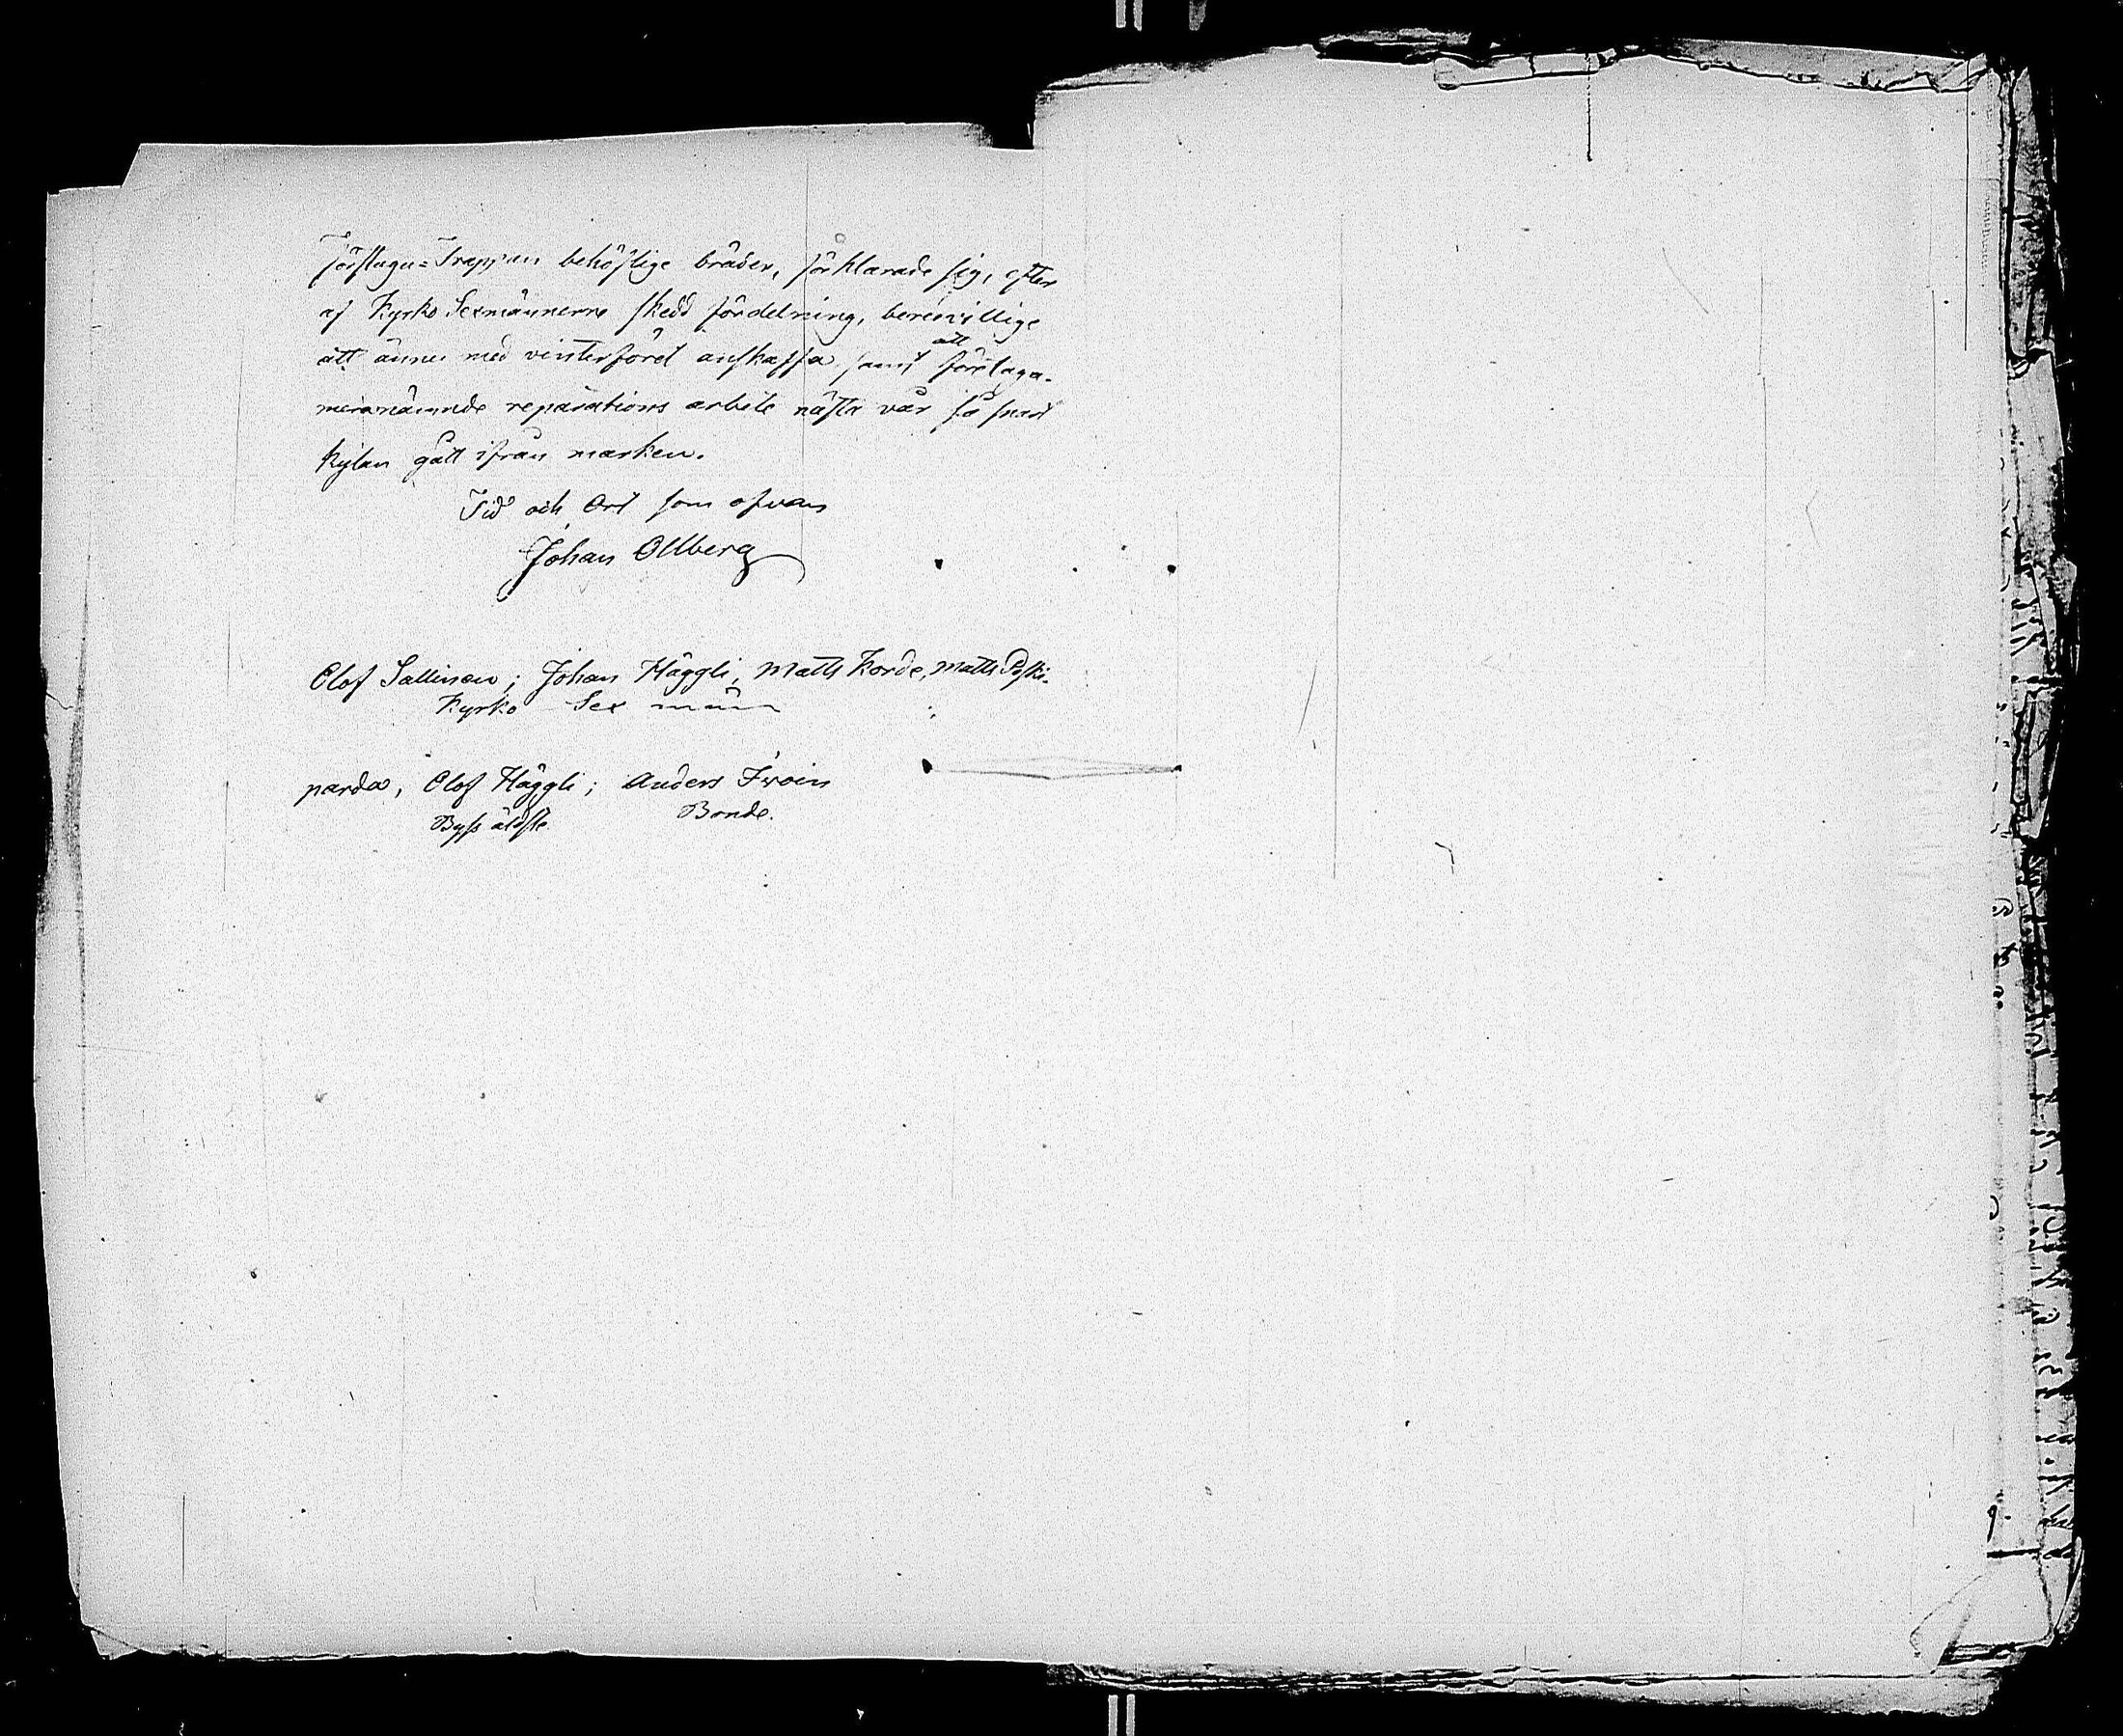 Förstugu=Trappan behöflige bräder, förklarade sig, efter
af Kyrko Sexmännerne skedd fördelning, beredvillige
att ännu med vinterföret anskaffa samt att företaga
mera nämnde reparations arbete nästa vår så snart
kylan gått ifrån marken.
Tid och Ort som ofvan
Johan Ollberg
Olof Sallinen; Johan Häggli, Matts Korde, Matts Poski-
Kyrko Sex män
parda, Olof Häggli; Anders
Byss äldste Bonde.